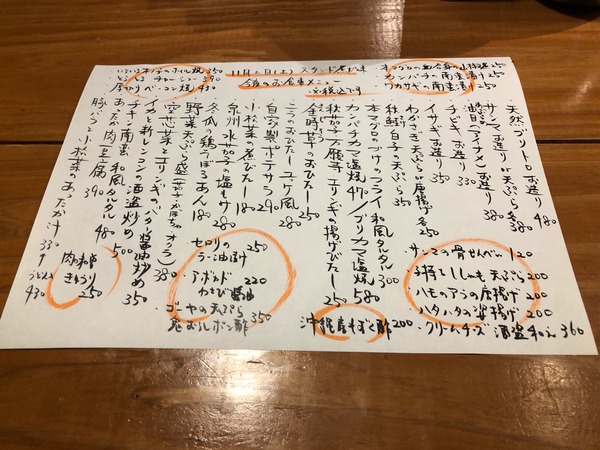 11月2日(土) スタンド
今夜のお食事メニュー
税込です
カンパチの南蛮漬け 250
ワカサギの南蛮漬け 250
厚切りベーコン焼 430
天然ブリトロお造り 480
サンマお造り 380
チビキ お造り 330
イサギお造り 350
わかさぎ天ぷら or 唐揚げ 各250
秋鮭白子の天ぷら 350
本マグロのヅケのフライ 和風タルタル 300
カンパチカマ塩焼 470/ブリカマ塩焼 580
秋茄子 万願寺 エリンギの揚げびたし 250
金時草のおひたし 250
ニラのおひたし ユッケ風
自家製ポテサラ 290
小松菜の煮びたし 180
泉州水茄子の塩サザ 280
冬瓜の鶏そぼろあん 180
野菜天ぷら盛
空芯菜とエリンギのバター醤油炒め 380
イカと新レンコンの酒盗炒め 350
チキン南蛮 和風タルタル 500
あったか肉豆腐 480
豚バラと小松菜のあったか汁 390
サンマの骨せんべい 120
子持ちししゃも 天ぷら 200
ハモのアラの唐揚げ 200
ハタハタの姿揚げ 200
クリームチーズ 酒盗和え 360
沖縄産もずく酢 200
セロリのラー油漬け 250
アボカドわさび醤油 220
ゴーヤの天ぷら
鬼おろしポン酢 350
肉みそきゅうり 250